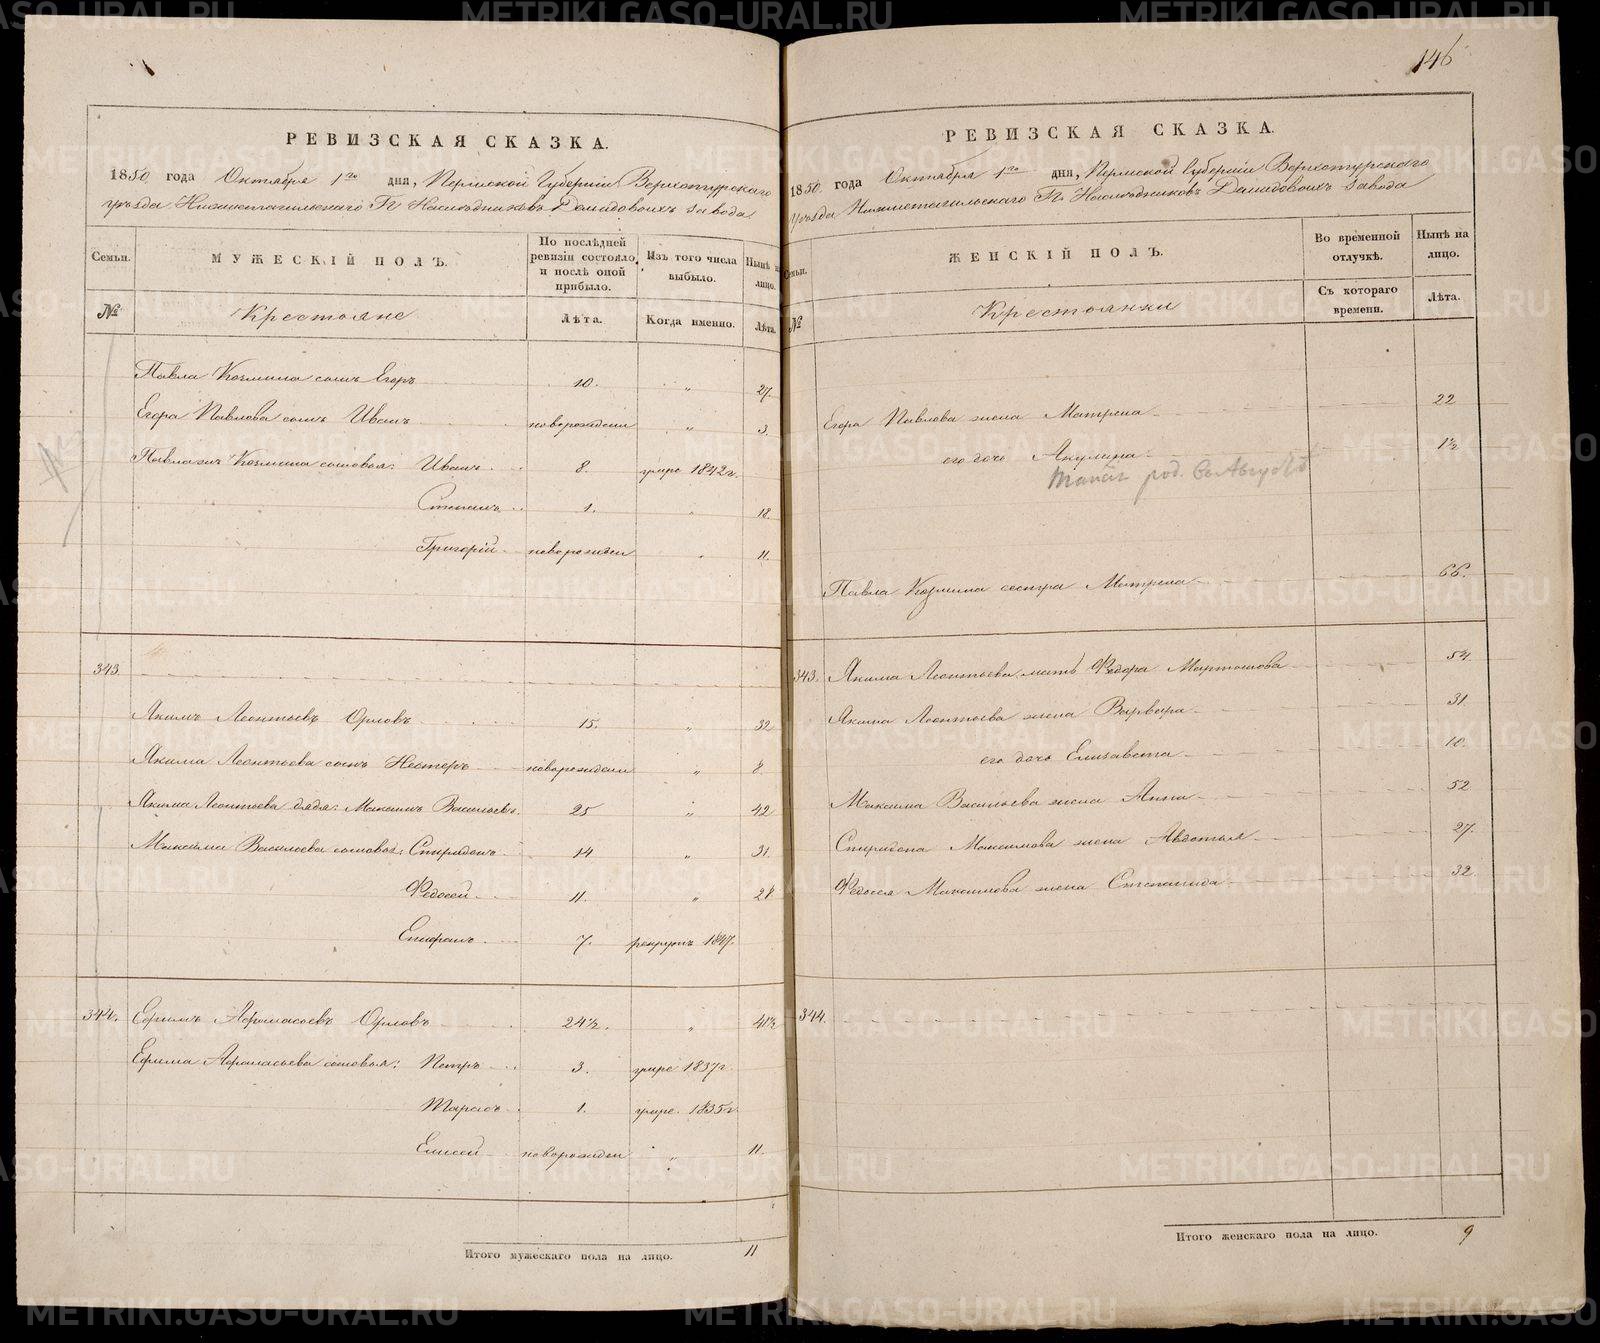 146
РЕВИЗСКАЯ СКАЗКА.
1850 года Октября 1го дня, Пермской Губерніи Верхотурскаго
уѣзда Нижнетагильскаго Гг. Наслѣдниковъ Демидовыхъ завода
Семьи.
МУЖЕСКІЙ ПОЛЪ.
По послѣдней ревизіи состояло и послѣ оной прибыло.
Изъ того числа выбыло.
Нынѣ на лицо.
№
Крестьяне
Лѣта.
Когда именно.
Лѣта.
Павла Козмина сынъ Егоръ 10. „ 27.
Егора Павлова сынъ Иванъ новорожден „ 3.
Козмина сыновья: Иванъ 8. умре 1842 г.
Степанъ 1. „ 18.
Григорій новорожден „ 11.
343.
Якимъ Леонтьевъ Орловъ 15. „ 32
Якима Леонтьева сынъ Нестеръ новорожден „ 8
Якима Леонтьева дядя: Максимъ Васильевъ 25 „ 42
Максима Васильева сыновья: Спиридонъ 14 „ 31.
Федосей 11. „ 28
Епифанъ 7. рекрутъ 1847.
344. Ефимъ Афонасьевъ Орловъ 24½. „ 41½
Ефима Афонасьева сыновья: Петръ 3. умре 1837 г.
Тарасъ 1. умре 1835 г.
Елисей новорожден „ 11.
Итого мужескаго пола на лицо. 11
РЕВИЗСКАЯ СКАЗКА.
1850 года Октября 1го дня, Пермской Губерніи Верхотурскаго
уѣзда Нижнетагильскаго Гг. Наслѣдниковъ Демидовыхъ завода
Семьи.
ЖЕНСКІЙ ПОЛЪ.
Во временной отлучкѣ.
Нынѣ на лицо.
№
Крестьянки
Съ котораго времени.
Лѣта.
Егора Павлова жена Матрена 22
его дочь Акулина 1½
род. Августѣ
Павла Козмина сестра Матрена 66.
343. Якима Леонтьева мать Федора Мартынова 54.
Якима Леонтьева жена Варвара 31.
его дочь Елизавета 10.
Максима Васильева жена Анна 52
Спиридона Максимова жена Авдотья 27.
Федосея Максимова жена Степанида 32.
344.
Итого женскаго пола на лицо. 9
METRIKI.GASO-URAL.RU